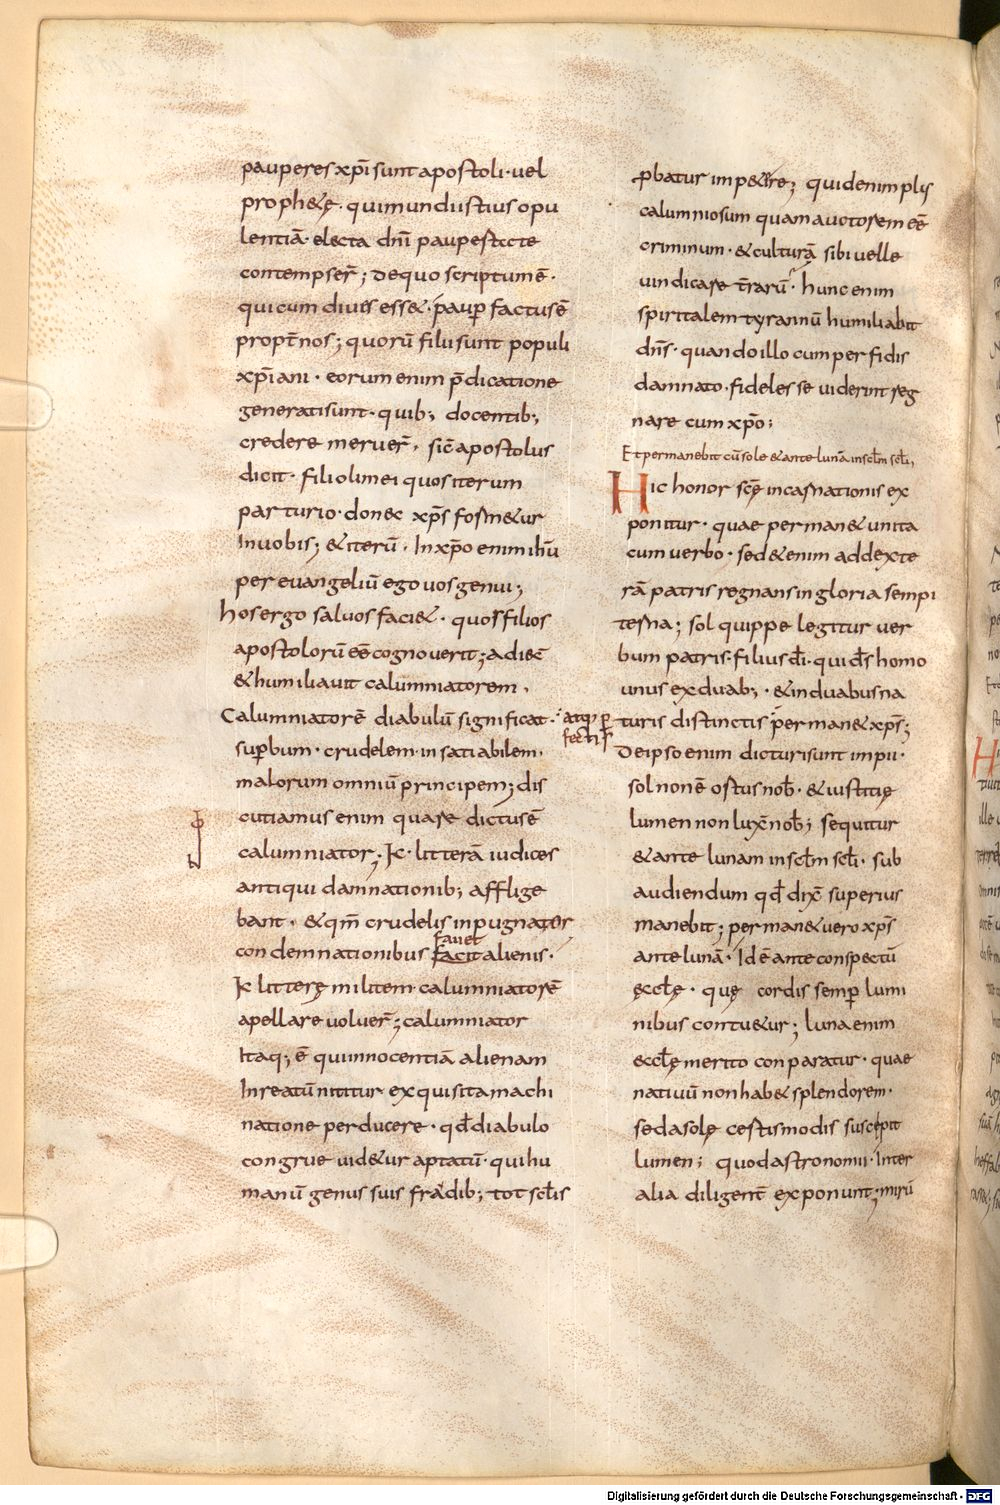 pauperes xp̄i sunt apostoli · vel
proph&ę · qui mundi istius opu
lentiā · electa dn̄i paupestate
contempser̄; De quo scriptum ē ·
qui cum dives ess& · paup̱ factus ē
propt̄ nos; quorū filii sunt populi
xp̄iani · eorum enim p̄dicatione
generati sunt · quib; docentib;,
credere meruer̄ · sic̄ apostolus
dicit · filioli mei quos iterum
parturio · donec xp̄s form&ur
In vobis; & iterū · In xp̄o enim ih̄u
per evangeliū ego vos genui;
hos ergo salvos faci& · quos filios
apostolorū eē cognoverit; adiec̄
& humiliavit calumniatorem ·
Calumniatorē diabulū significat ·
atq; p̱
fectis
sup̱bum · crudelem · insatiabilem ·
malorum omniū principem; dis
cutiamus enim quare dictus ē
calumniator; K · litterā iudices
antiqui damnationib; afflige
bant · & qm̄ crudelis inpugnator
favet
condemnationibus facit alienis ·
K litterę militem calumniatorē
apellare voluer̄; calumniator
Itaq; ē qui innocentiā alienam
In reatū nititur exquisita machi
natione perducere · qd̄ diabulo
congrue vid&ur aptatū · qui hu
manū genus suis fraudib; tot scl̄is
p̱batur imp&ere; quid enim pl;
calumniosum quam auctorem eē
criminum · & culturā sibi velle
vindicare t̄rarū · hunc enim
spiritalem tyrannū humiliabit
dn̄s · quando illo cum perfidis
damnato · fideles se viderint reg
nare cum xp̄o;
Et permanebit cū sole & ante lunā in scl̄m scl̄i,
Hic honor scę̄ incarnationis ex
ponitur · quae perman& unita
cum verbo · sed & enim ad dexte
rā patris regnans in gloria sempi
terna; sol quippe legitur ver
bum patris · filius dī · qui d̄s homo
unus ex duab; · & in duabus na
turis distinctis perman& xp̄s;
De ipso enim dicturi sunt impii ·
sol non ē ortus nob̄ · & iustitię
lumen non lux̄ nob̄; sequitur
& ante lunam in scl̄m scl̄i · sub
audiendum qd̄ dix̄ superius
manebit; perman& vero xp̄s
ante lunā · Id ē ante conspectū
ęccl̄ę · quę cordis semp̱ lumi
nibus contu&ur; luna enim
&ccl̄ę merito conparatur · quae
nativū non hab& splendorem ·
sed a sole certis modis suscepit
lumen; quod astronomii · Inter
alia diligent̄ exponunt; mirū
Digitalisierung gefördert durch die Deutsche Forschungsgemeinschaft - DFG